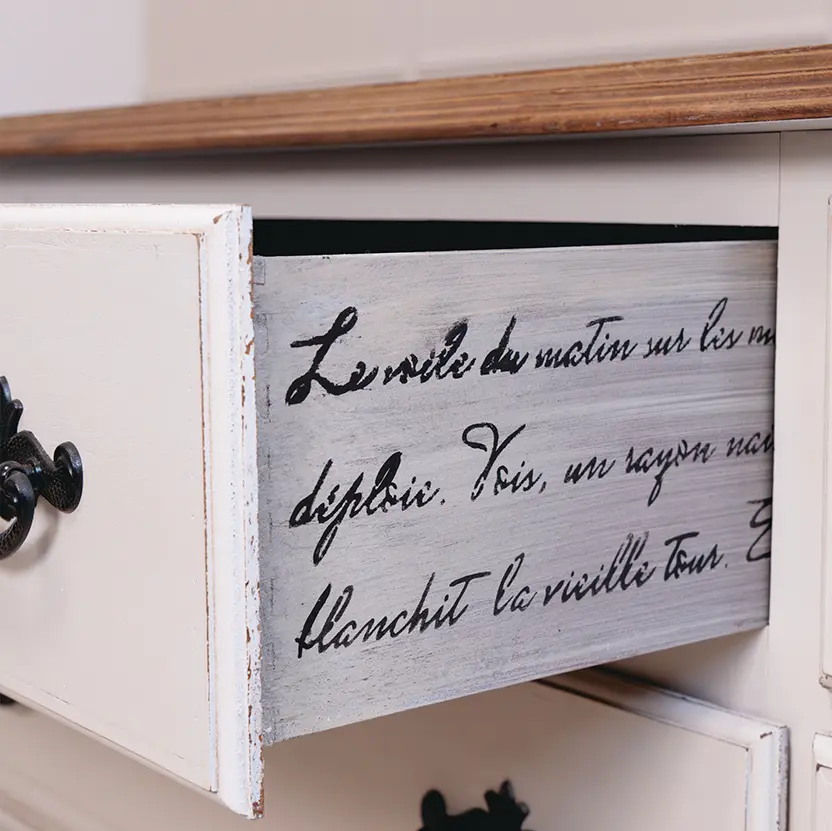 Le voile du matin sur les m
déploie. Vois, un rayon nai
blanchit la vieille tour. E